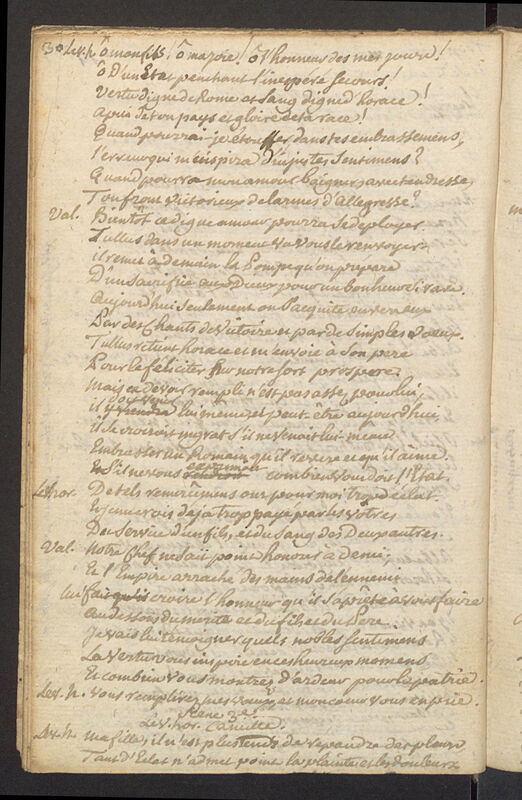 30 Le v.h. ô mon fils! ô ma joie! ô l'honneur des mes jours!
ô D'un Etat penchant l'inesperé secours!
Vertu digne de Rome et sang digne d'horace!
apui de ton pays et gloire de ta race!
Quand pourrai-je étouffer dans tes embrassemens,
l'erreur qui m'inspira d'injustes sentimens?
Quand pourra mon amour baigner avec tendresse,
Ton front victorieux de larmes d'allegresse?
Val. Bientôt ce digne amour pourra se deployer.
Tullus dans un moment va vous le renvoyer.
il remet à demain la Pompe qu'on prepare
D'un sacrifice aux Dieux pour un bonheur si rare.
aujourd'hui seulement on s'acquite envers eux
Par des Chants de victoire et par de simples voeux.
Tullus retient horace et m'envoie à son pere
Pour le féliciter sur notre sort prospere.
Mais ce devoir rempli n'est pas assez pour lui;
il viendra lui meme, et peut être aujourd'hui
il se croiroit ingrat s'il ne venoit lui meme
Embrasser un Romain qu'il revere et qu'il aime.
Et s'il ne vous exprimoit combien vous doit l'Etat.
Le hor. De tels remercimens ont pour moi trop d'eclat.
Et je me vois deja trop payé par les vôtres
Du service d'un fils, et du sang des Deux autres.
Val. Notre Chef ne sait point honorer à demi;
Et l'Empire arraché des mains de l'ennemi
lui fait croire l'honneur qu'il s'aprête à vous faire
au dessous du merite et du fils et du Pere.
Je vais lui temoigner quels nobles sentimens
La vertu vous inspire en ces heureux momens
Et combien vous montrez d'ardeur pour la patrie.
Le v. h. vous remplirez mes voeux, et mon coeur vous en prie.
Scene 3e
Le v. hor. Camille
Le v. h. ma fille, il n'est plus tems de repandre des pleurs
Tant d'Eclat n'admet point la plainte et les douleurs